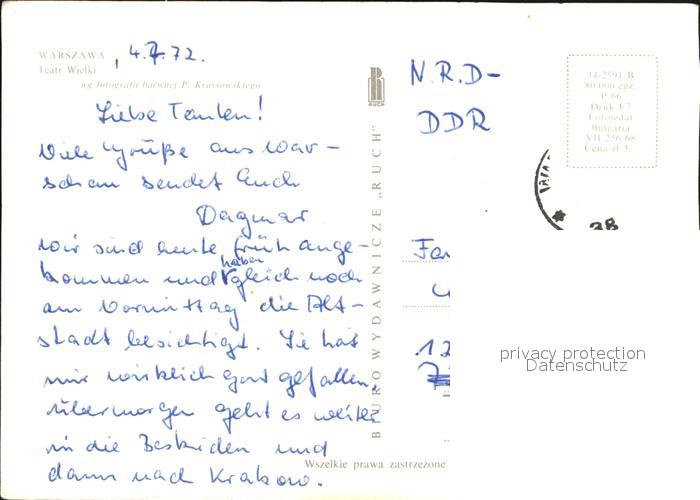 WARSZAWA , 4.7.72.
Teatr Wielki
wg fotografii barwnej P. Krassowskiego
Liebe Tanten!
Viele Grüße aus War-
schau sendet Euch
Dagmar
Wir sind heute früh ange-
kommen und haben gleich noch
am Vormittag die Alt-
stadt besichtigt. Sie hat
mir wirklich gut gefallen.
Übermorgen geht es weiter
in die Beskiden und
dann nach Krakow.
BIURO WYDAWNICZE „RUCH"
RUCH
N.R.D-
DDR
Fa
12
34-2591/B
80.000 egz.
P-66
Druk F7
Fotoizdat
Bulgaria
VII 256 68
Cena zł 3.
privacy protection
Datenschutz
Wszelkie prawa zastrzeżone